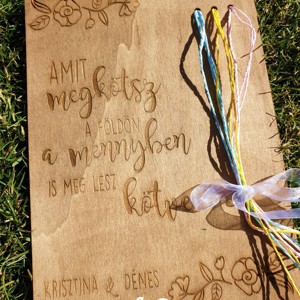 AMIT
megkötsz
A FÖLDÖN
a mennyben
IS MEG LESZ
kötve
KRISZTINA & DÉNES